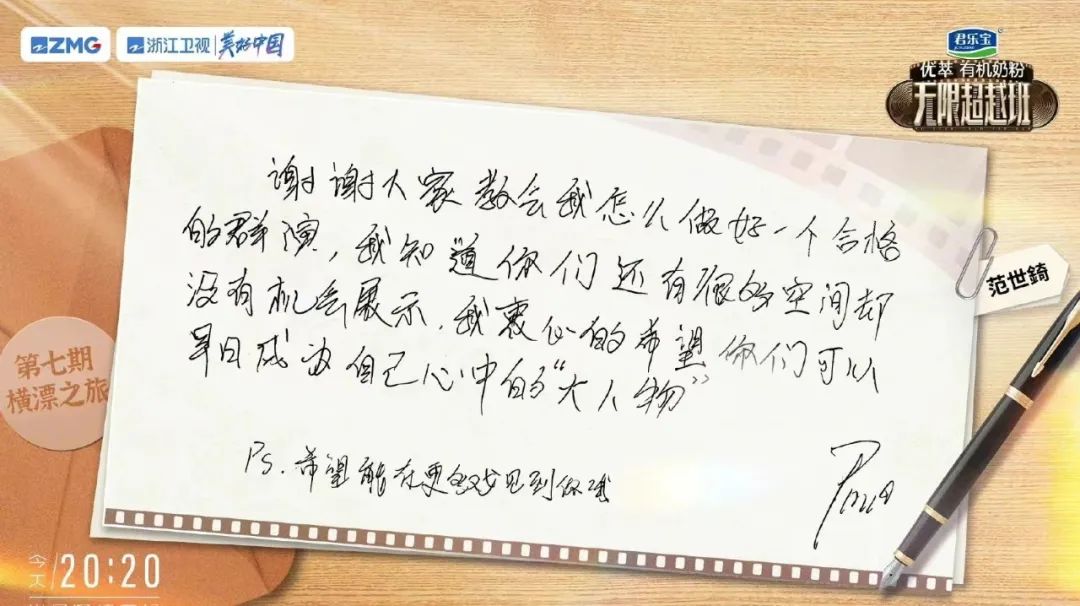 ZMG
浙江卫视 美好中国
君乐宝
优萃 有机奶粉
无限超越班
谢谢大家教会我怎么做好一个合格
的群演，我知道你们还有很多空间却
没有机会展示，我衷心的希望你们可以
早日成为自己心中的“大人物”
Ps.希望能在更多戏见到你哦
范世錡
第七期
横漂之旅
今天
20:20